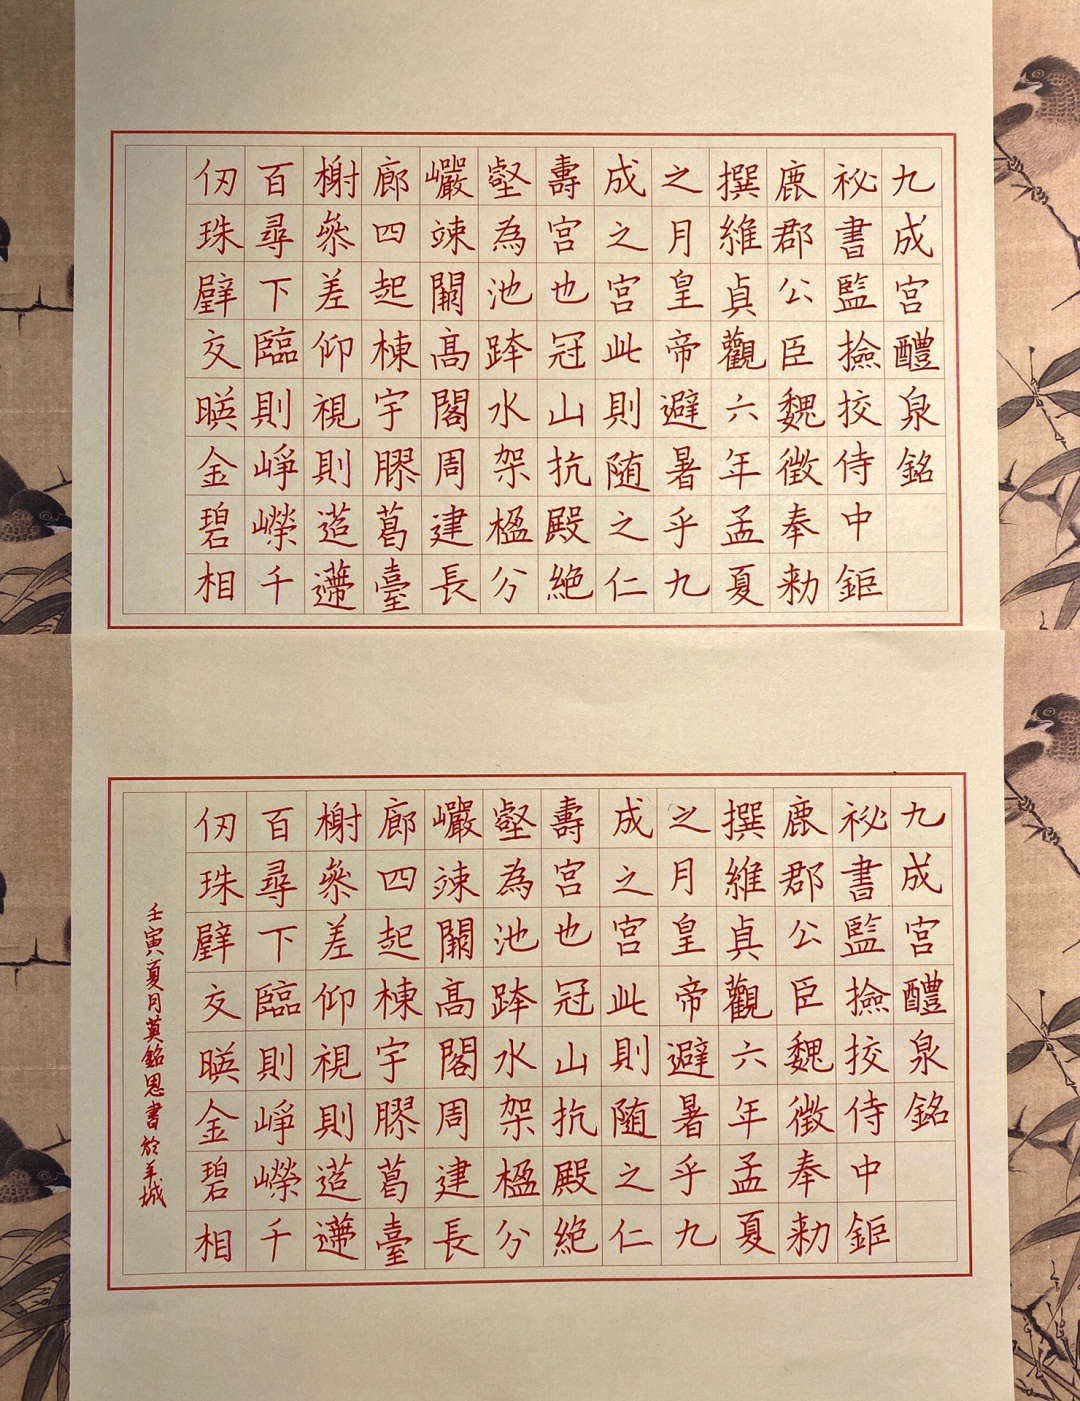 九成宮醴泉銘
秘書監撿挍侍中鉅
鹿郡公臣魏徵奉勑
撰維貞觀六年孟夏
之月皇帝避暑乎九
成之宮此則隨之仁
壽宮也冠山抗殿絕
壑為池跨水架楹分
巖竦闕高閣周建長
廊四起棟宇膠葛臺
榭參差仰視則迢遰
百尋下臨則崢嶸千
仞珠壁交暎金碧相
九成宮醴泉銘
秘書監撿挍侍中鉅
鹿郡公臣魏徵奉勑
撰維貞觀六年孟夏
之月皇帝避暑乎九
成之宮此則隨之仁
壽宮也冠山抗殿絕
壑為池跨水架楹分
巖竦闕高閣周建長
廊四起棟宇膠葛臺
榭參差仰視則迢遰
百尋下臨則崢嶸千
仞珠壁交暎金碧相
壬寅夏月莫銘恩書於羊城